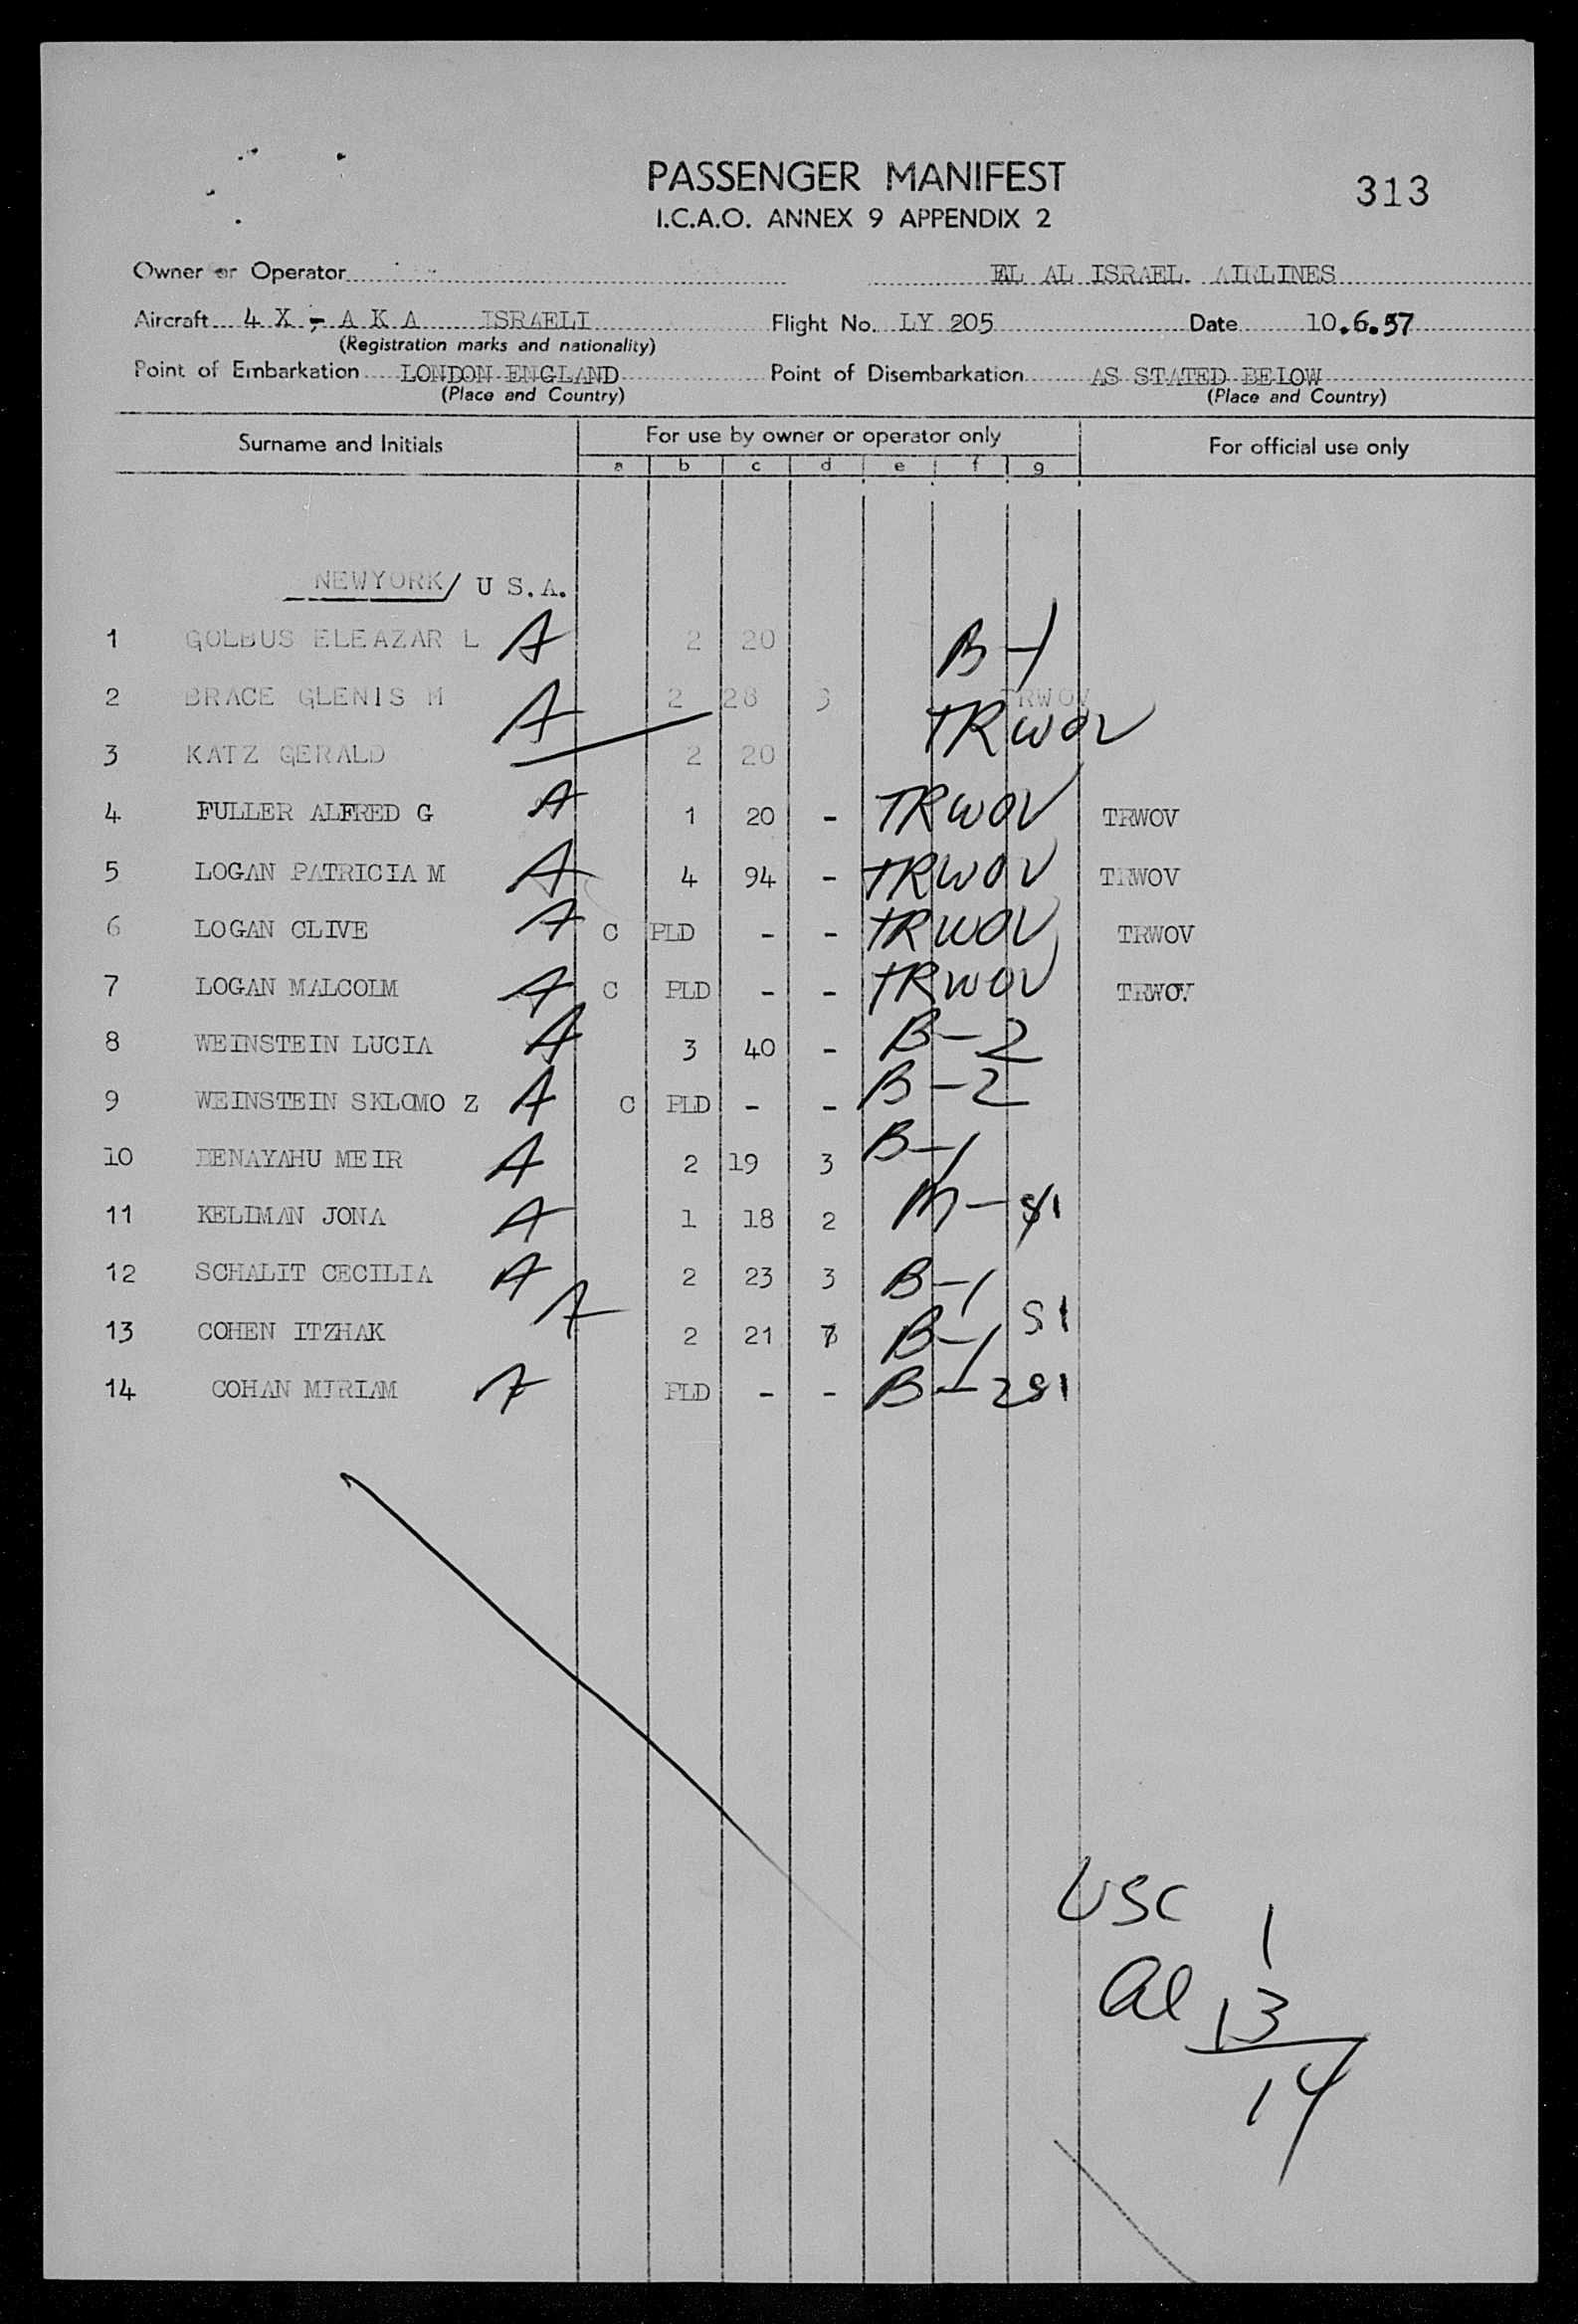 PASSENGER MANIFEST
313
I.C.A.O. ANNEX 9 APPENDIX 2
Owner or Operator EL AL ISRAEL. AIRLINES
Aircraft 4 X - A K A ISRAELI Flight No. LY 205 Date 10.6.57
(Registration marks and nationality)
Point of Embarkation LONDON ENGLAND Point of Disembarkation AS STATED BELOW
(Place and Country) (Place and Country)
Surname and Initials For use by owner or operator only For official use only
a b c d e f g
NEWYORK/ U S.A.
1 GOLBUS ELEAZAR L A 2 20 B-1
2 BRACE GLENIS M A 2 28 3 TRWOV TRWOV
3 KATZ GERALD 2 20
4 FULLER ALFRED G A 1 20 - TRWOV TRWOV
5 LOGAN PATRICIA M A 4 94 - TRWOV TRWOV
6 LOGAN CLIVE A C PLD - - TRWOV TRWOV
7 LOGAN MALCOLM A C PLD - - TRWOV TRWOV
8 WEINSTEIN LUCIA A 3 40 - B-2
9 WEINSTEIN SKLOMO Z A C PLD - - B-2
10 BENAYAHU MEIR A 2 19 3 B-1
11 KELIMAN JONA A 1 18 2 M-
12 SCHALIT CECILIA A 2 23 3 B-1
13 COHEN ITZHAK A 2 21 B-1 S1
14 COHAN MIRIAM A PLD - - B-2 S1
USC 1
al 13
14